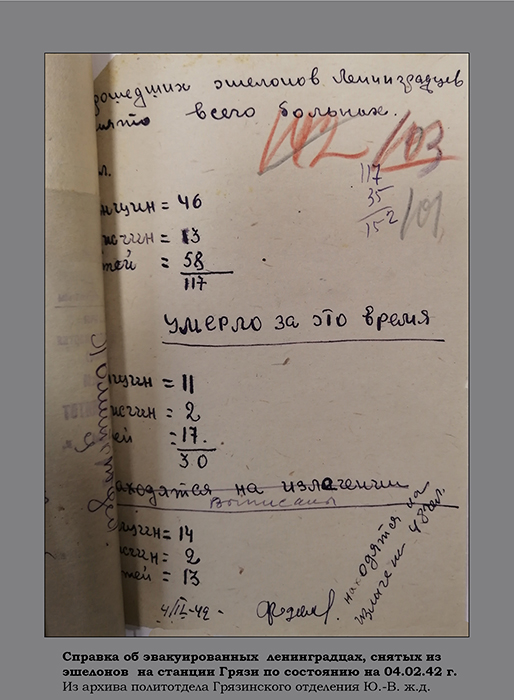 рошедших эшелонов Ленинградцев
нято всего больных.
л.
нщин = 46
жчин = 13
тей = 58
117
102 103
117
35
152
101
умерло за это время
нщин = 11
жчин = 2
ей = 17.
30
аходятся на излечении
выписаны
щин = 14
чин = 2
тей = 13
находятся на
излечении 48 чел.
4/II-42-
Справка об эвакуированных ленинградцах, снятых из
эшелонов на станции Грязи по состоянию на 04.02.42 г.
Из архива политотдела Грязинского отделения Ю.-В. ж.д.